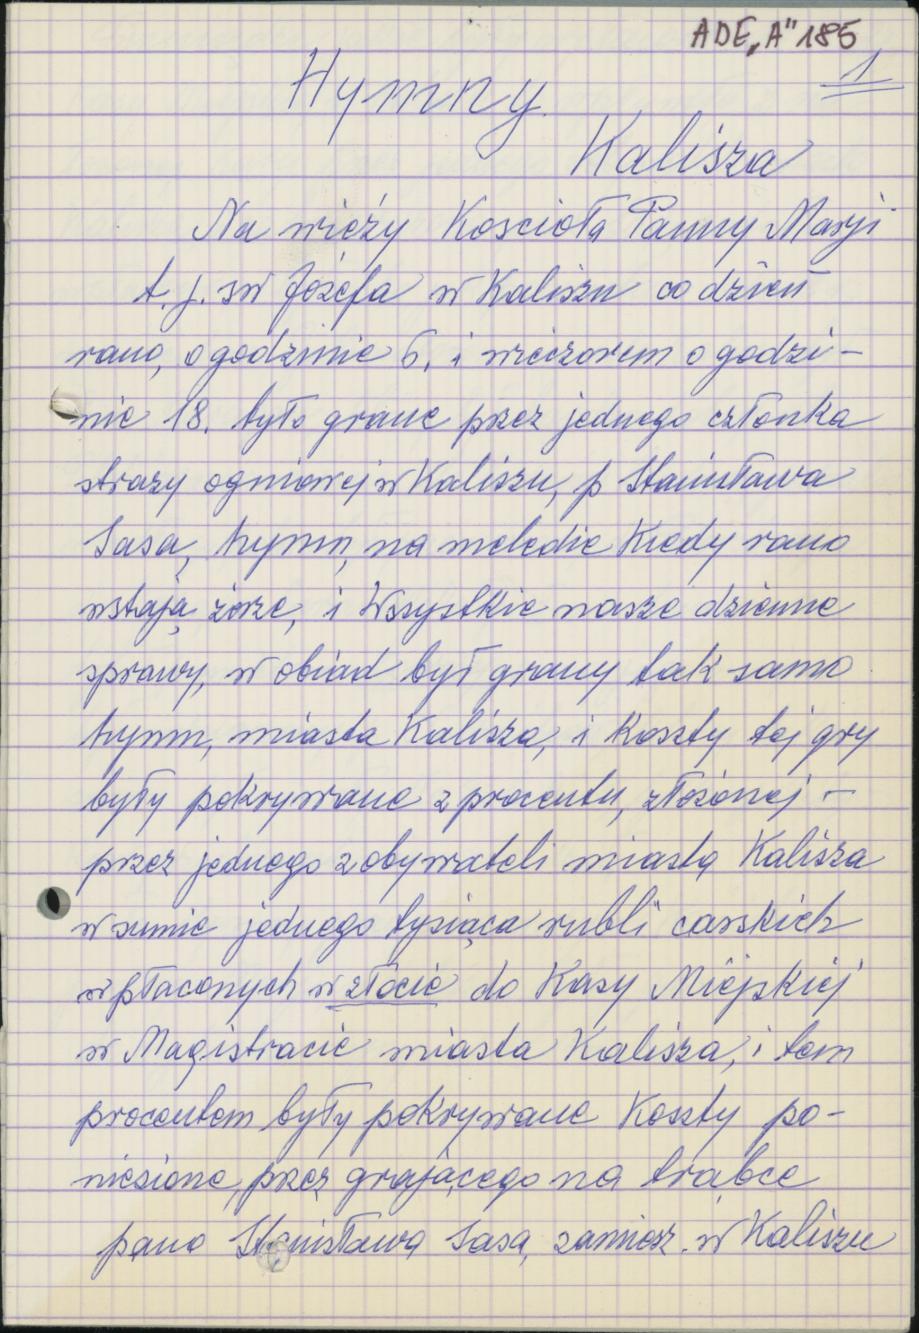 ADE „A" 185
1
Hymny
Kalisza
Na wieży Koscioła Panny Maryi
t. j. św Józefa w Kaliszu co dzień
rano, o godzinie 6, i wieczorem o godzi-
nie 18. było grane przez jednego członka
straży ogniowej w Kaliszu, p Stanisława
Sasa, hymn, na melodie Kiedy rano
wstają zorze, i Wszystkie nasze dzienne
sprawy, w obiad był grany tak samo
hymn, miasta Kalisza, i koszty tej gry
były pokrywane z procentu, złożonej -
przez jednego z obywateli miasta Kalisza
w sumie jednego tysiąca rubli carskich
wpłaconych w złocie do Kasy Miejskiej
w Magistracie miasta Kalisza, i tem
procentem były pokrywane koszty po-
niesione, przez grającego na trąbce
pana Stanisława Sasa, zamiesz. w Kaliszu